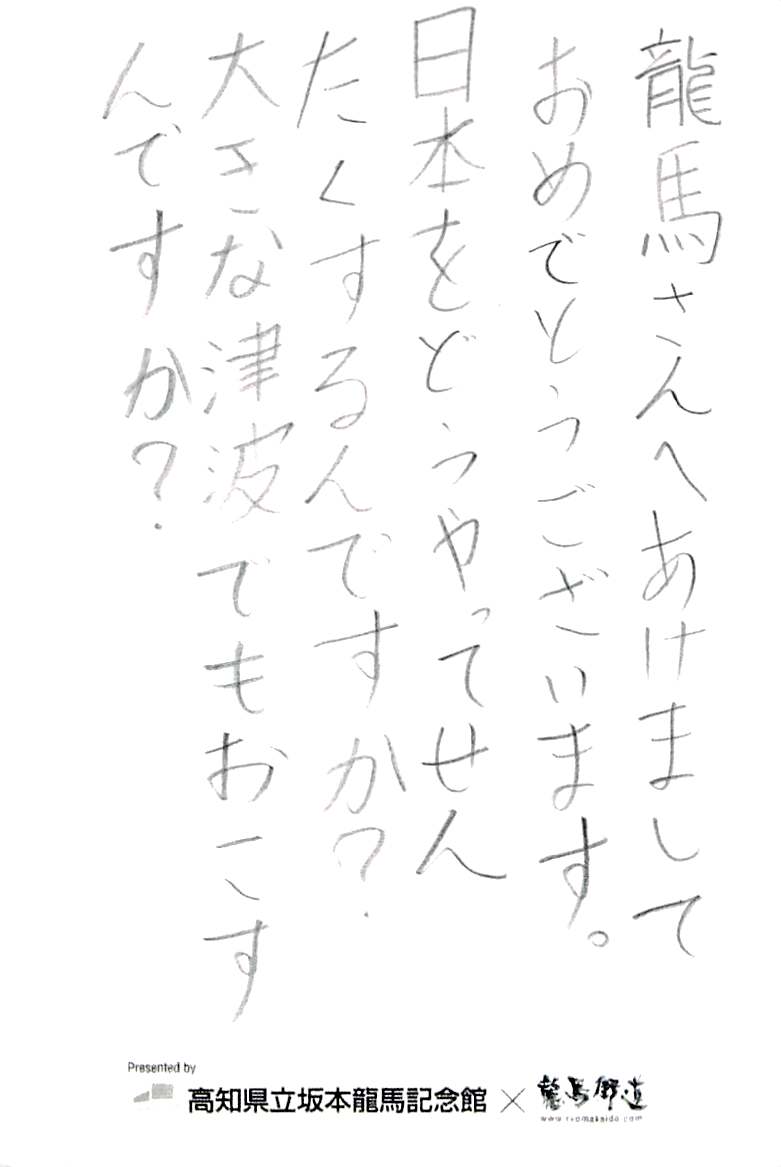 龍馬さんへあけまして
おめでとうございます。
日本をどうやってせん
たくするんですか?
大きな津波でもおこす
んですか?
Presented by
高知県立坂本龍馬記念館 × 龍馬街道
www.ryomakaido.com